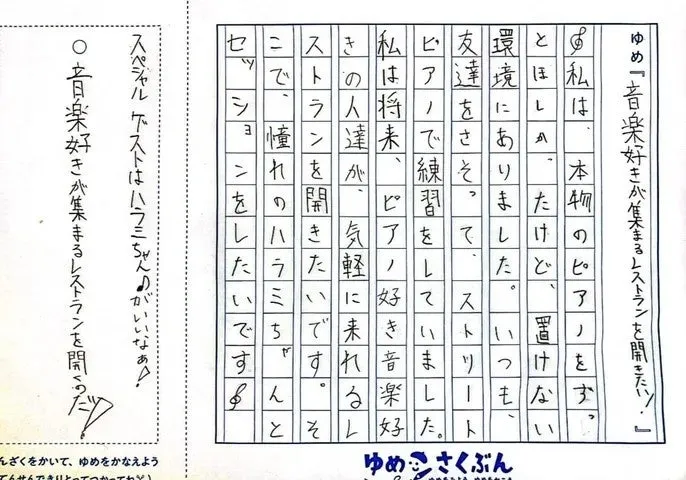 ゆめ『音楽好きが集まるレストランを開きたいッ!』
𝄞私は、本物のピアノをずっ
とほしかったけど、置けない
環境にありました。いつも、
友達をさそって、ストリート
ピアノで練習をしていました。
私は将来、ピアノ好き音楽好
きの人達が、気軽に来れるレ
ストランを開きたいです。そ
こで、憧れのハラミちゃんと
セッションをしたいです𝄞
スペシャルゲストはハラミちゃん♪がいいなぁ!
○音楽好きが集まるレストランを開くのだッ!
んざくをかいて、ゆめをかなえよう
ゆめさくぶん